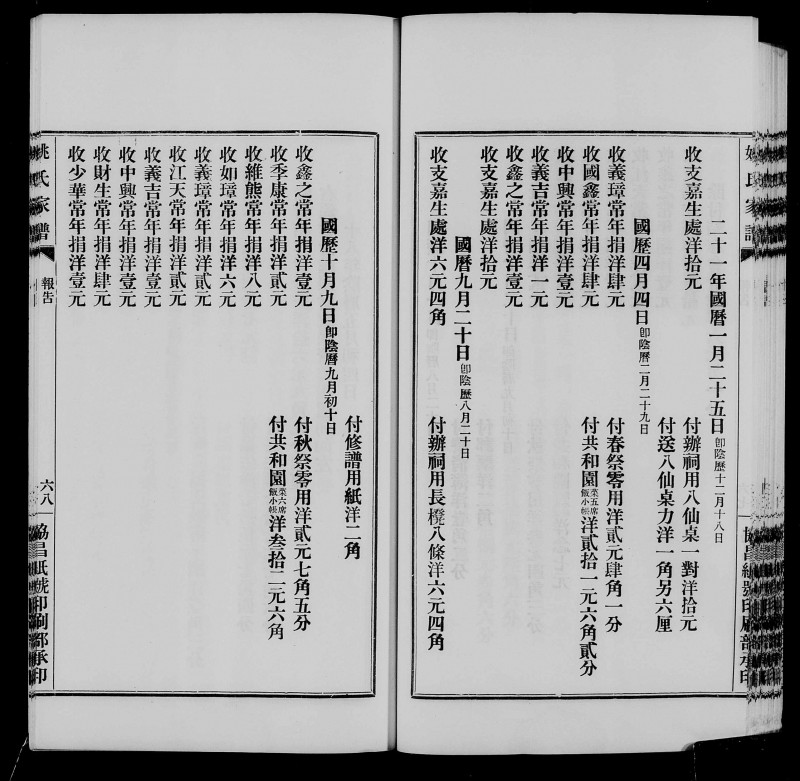 二十一年國曆一月二十五日即陰曆十二月十八日
收支嘉生處洋拾元
付辦祠用八仙桌一對洋拾元
付送八仙桌力洋一角另六厘
國曆四月四日即陰曆二月二十九日
收義璋常年捐洋肆元
付春祭零用洋貳元肆角一分
收國鑫常年捐洋肆元
付共和園菜五席飯小帳洋貳拾一元六角貳分
收中興常年捐洋壹元
收義吉常年捐洋一元
收鑫之常年捐洋壹元
收支嘉生處洋拾元
國曆九月二十日即陰曆八月二十日
收支嘉生處洋六元四角
付辦祠用長櫈八條洋六元四角
付修譜用紙洋二角
國曆十月九日即陰曆九月初十日
收鑫之常年捐洋壹元
付秋祭零用洋貳元七角五分
收季康常年捐洋貳元
付共和園菜六席飯小帳洋叁拾二元六角
收維熊常年捐洋八元
收如璋常年捐洋六元
收義璋常年捐洋貳元
收江天常年捐洋貳元
收義吉常年捐洋壹元
收中興常年捐洋壹元
收財生常年捐洋肆元
收少華常年捐洋壹元
姚氏家譜
報告
六八
協昌紙號印刷部承印